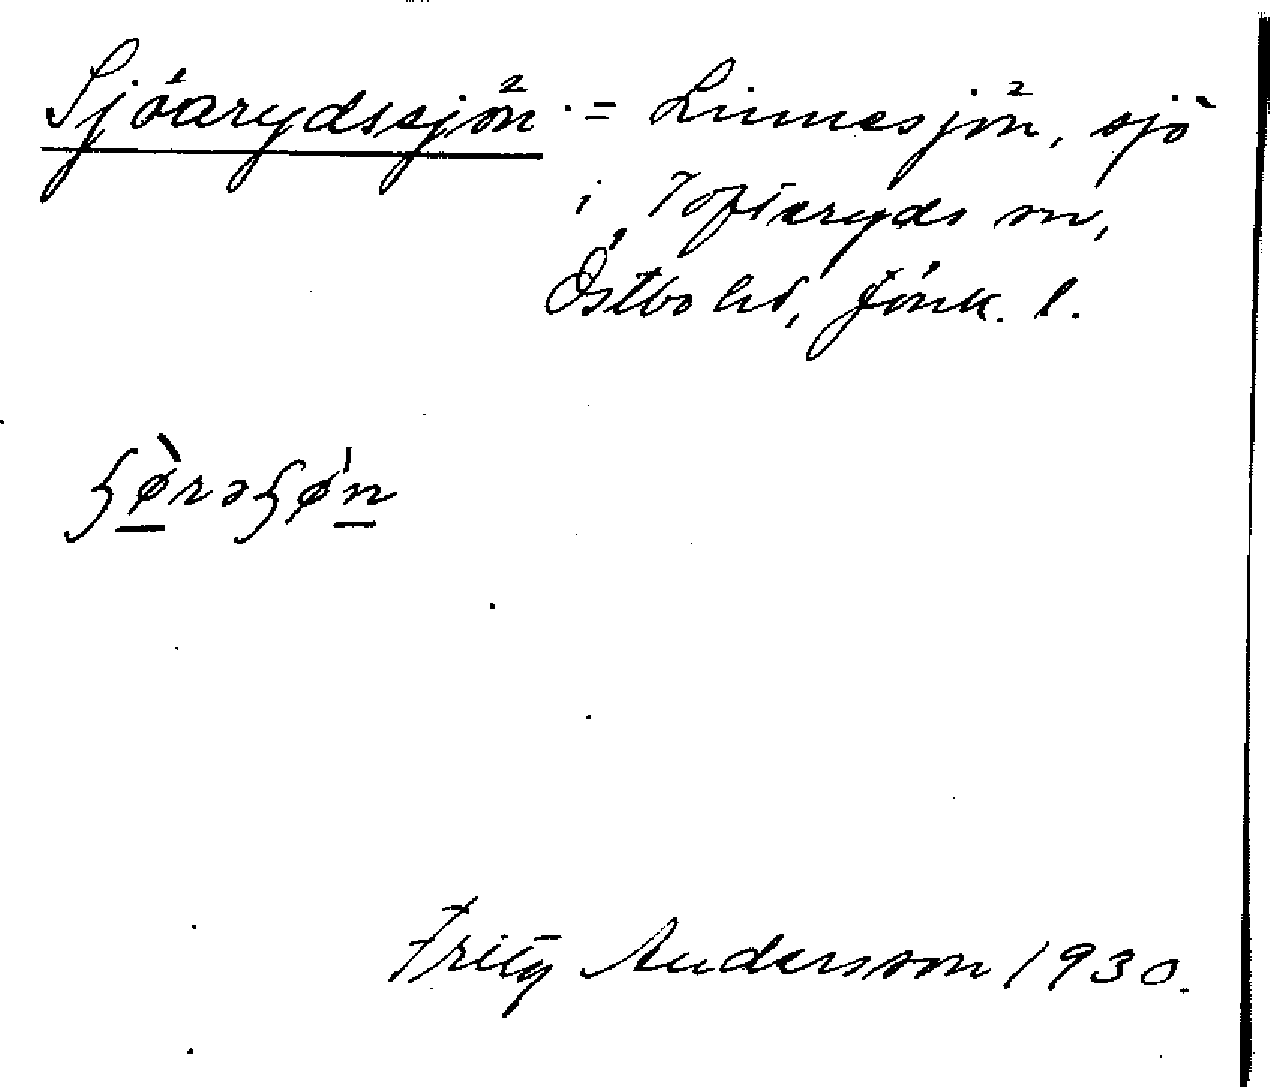 Sjöarydssjön = Linnesjön, sjö
i Tofteryds sn,
Östbo hd, Jönk. l.
Fritz Andersson 1930.